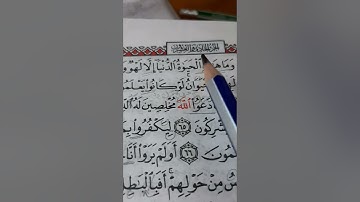 الجزء الحادي والعشرون
وَمَا هَ ٱلْحَيَوٰةُ ٱلدُّنْيَآ إِلَّا لَهْوٌ و
حَيَوَانُ لَوْ كَانُوا۟ يَعْلَمُ
دَعَوُا۟ ٱللَّهَ مُخْلِصِينَ لَهُ ٱل
شْرِكُونَ ٦٥ لِيَكْفُرُوا۟ بِمَ
لَمُونَ ٦٦ أَوَلَمْ يَرَوْا۟ أَنَّا
سُ مِنْ حَوْلِهِمْ ۚ أَفَبِٱلْبَٰطِلِ